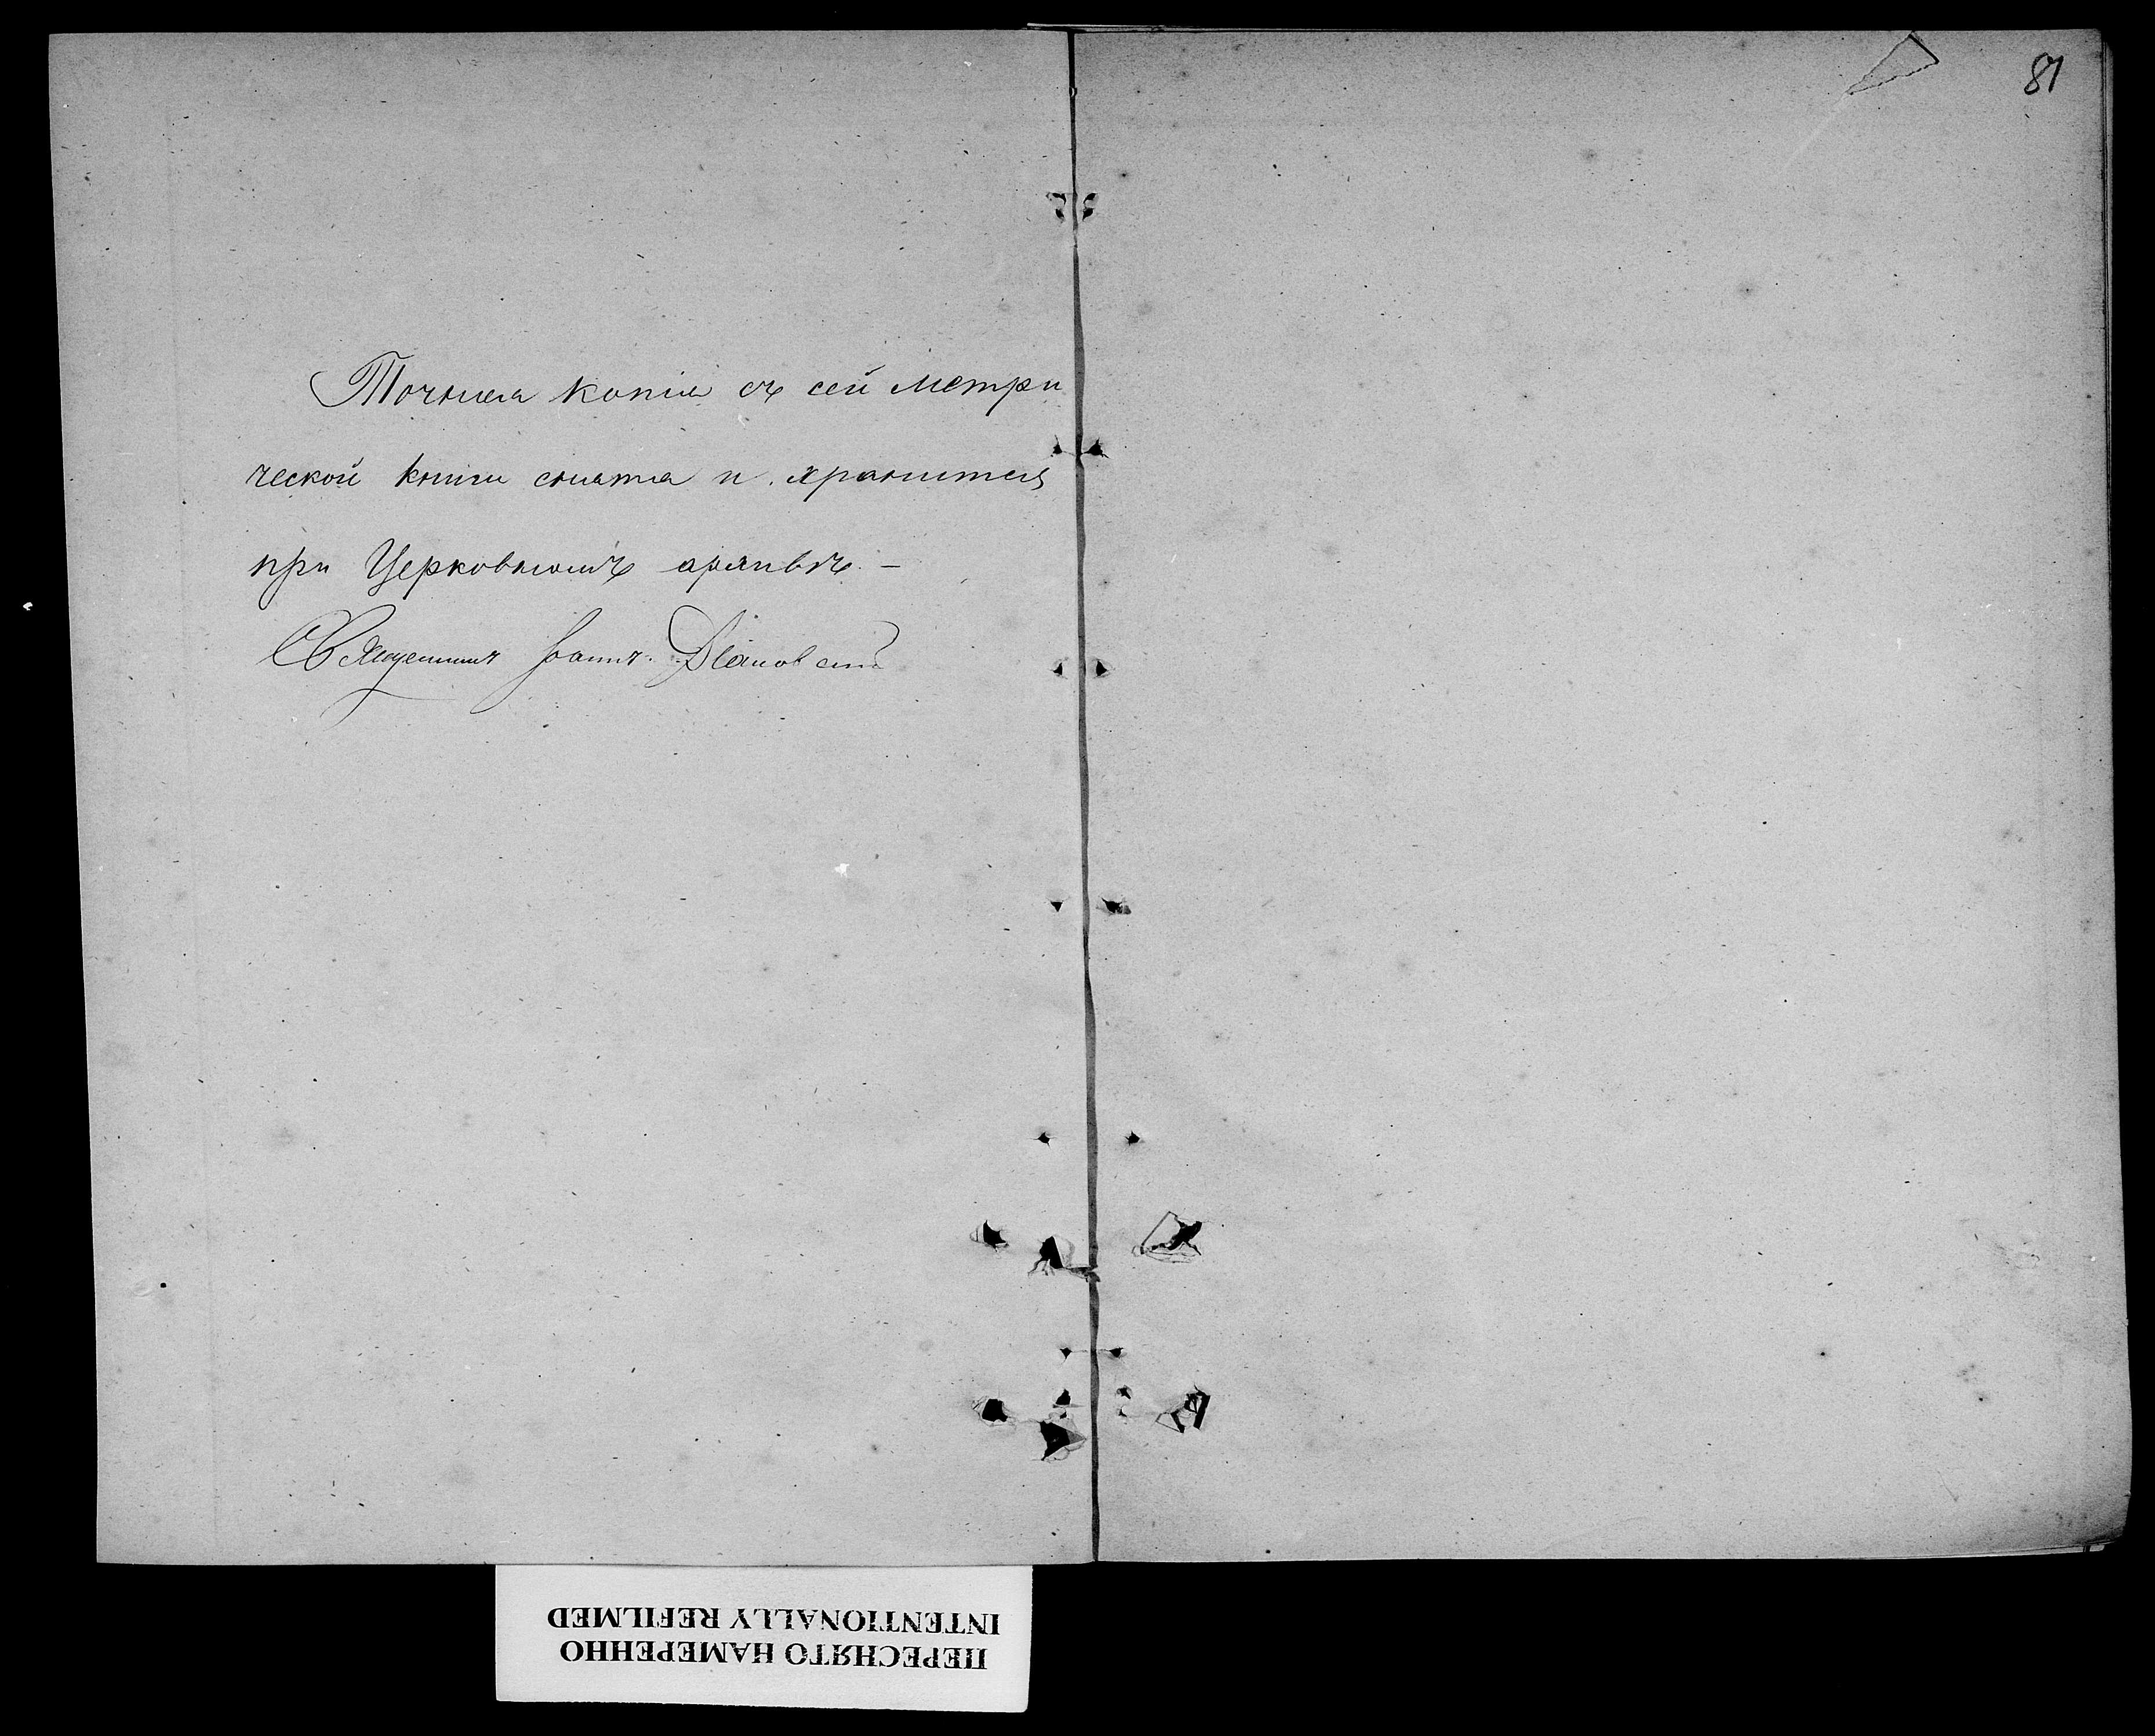 Точная копія съ сей метри
ческой книги снята и хранится
при Церковномъ архивѣ. –
Священникъ Іоаннъ
81
ПЕРЕСНЯТО НАМЕРЕННО
INTENTIONALLY REFILMED